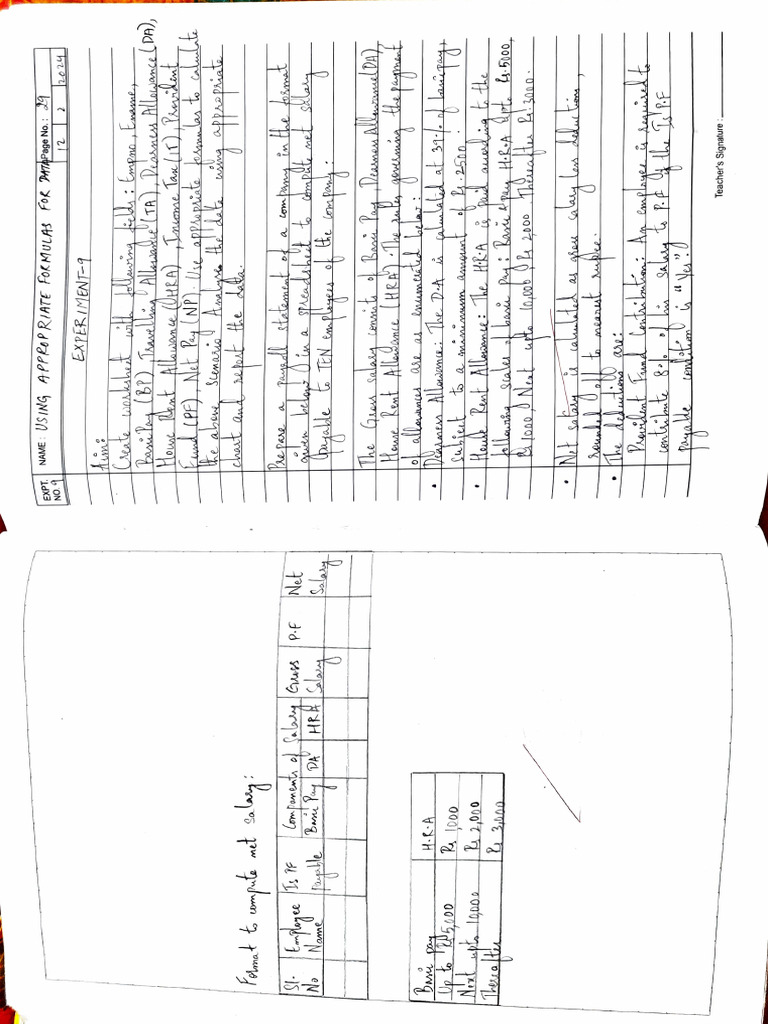 EXPT. NO. 9
NAME: USING APPROPRIATE FORMULAS FOR DATA
Page No.: 29
12 2 2024
EXPERIMENT-9
Aim:
Create worksheet with following fields: Empno, Ename,
Basic Pay (BP), Travelling Allowance (TA), Dearness Allowance (DA),
House Rent Allowance (HRA), Income Tax (IT), Provident
Fund (PF), Net Pay (NP). Use appropriate formulas to calculate
the above scenario. Analyse the data using appropriate
chart and report the data.
Prepare a payroll statement of a company in the format
given below in a spreadsheet to compute net salary
payable to TEN employees of the company:
The Gross salary consits of Basic Pay, Dearness Allowance (DA),
House Rent Allowance (HRA). The rules governing the payment
of allowances are as enumerated below:
• Dearness Allowance: The D.A is calculated at 39.% of basic pay,
subject to a minimum amount of Rs. 2500.
• House Rent Allowance: The H.R.A is paid according to the
following scales of basic pay: Basic pay H.R.A upto Rs. 5000,
Rs 1000, Next upto 10,000, Rs 2,000 Thereafter Rs. 3000.
• Net salary is calculated as gross salary less deductions,
rounded off to nearest rupee.
• The deductions are:
Provident Fund Contribution: An employee is required to
contribute 8% of his salary to P.F if the "Is P.F
payable" condition is "Yes."
Teacher's Signature :
Format to compute net salary:
Sl. No
Employee Name
Is PF payable
Components of Salary
Basic Pay
DA
HRA
Gross Salary
P.F
Net Salary
Basic pay H.R.A
Up to Rs 5,000 Rs 1,000
Next upto 10,000 Rs 2,000
Thereafter Rs 3,000